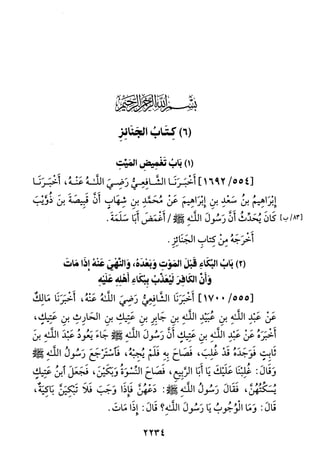 بِسْمِ اللَّهِ الرَّحْمَنِ الرَّحِيمِ
(٦) كِتَابُ الجَنَائِزِ
(١) بَابُ تَغْمِيضِ المَيِّتِ
[١٦٩٢/٥٥٤] أَخْبَرَنَا الشَّافِعِيُّ رَضِيَ اللَّهُ عَنْهُ، أَخْبَرَنَا
إِبْرَاهِيمُ بنُ سَعْدِ بنِ إِبْرَاهِيمَ عَنْ مُحَمَّدِ بنِ شِهَابٍ أَنَّ قَبِيصَةَ بنَ ذُؤَيْبٍ
[٨٣/ب] كَانَ يُحَدِّثُ أَنَّ رَسُولَ اللَّهِ ﷺ / أَغْمَضَ أَبَا سَلَمَةَ.
أَخْرَجَهُ مِنْ كِتَابِ الجَنَائِزِ.
(٢) بَابُ البُكَاءِ قَبْلَ المَوْتِ وَبَعْدَهُ، وَالنَّهْيِ عَنْهُ إِذَا مَاتَ
وَأَنَّ الكَافِرَ لَيُعَذَّبُ بِبُكَاءِ أَهْلِهِ عَلَيْهِ
[١٧٠٠/٥٥٥] أَخْبَرَنَا الشَّافِعِيُّ رَضِيَ اللَّهُ عَنْهُ، أَخْبَرَنَا مَالِكٌ
عَنْ عَبْدِ اللَّهِ بنِ عُبَيْدِ اللَّهِ بنِ جَابِرِ بنِ عَتِيكِ بنِ الحَارِثِ بنِ عَتِيكٍ،
أَخْبَرَهُ عَنْ عَبْدِ اللَّهِ بنِ عَتِيكٍ أَنَّ رَسُولَ اللَّهِ ﷺ جَاءَ يَعُودُ عَبْدَ اللَّهِ بنَ
ثَابِتٍ فَوَجَدَهُ قَدْ غُلِبَ، فَصَاحَ بِهِ فَلَمْ يُجِبْهُ، فَاسْتَرْجَعَ رَسُولُ اللَّهِ ﷺ
وَقَالَ: غُلِبْنَا عَلَيْكَ يَا أَبَا الرَّبِيعِ، فَصَاحَ النِّسْوَةُ وَبَكَيْنَ، فَجَعَلَ ابْنُ عَتِيكٍ
يُسَكِّتُهُنَّ، فَقَالَ رَسُولُ اللَّهِ ﷺ: دَعْهُنَّ فَإِذَا وَجَبَ فَلَا تَبْكِيَنَّ بَاكِيَةٌ،
قَالَ: وَمَا الْوُجُوبُ يَا رَسُولَ اللَّهِ؟ قَالَ: إِذَا مَاتَ.
٢٢٣٤